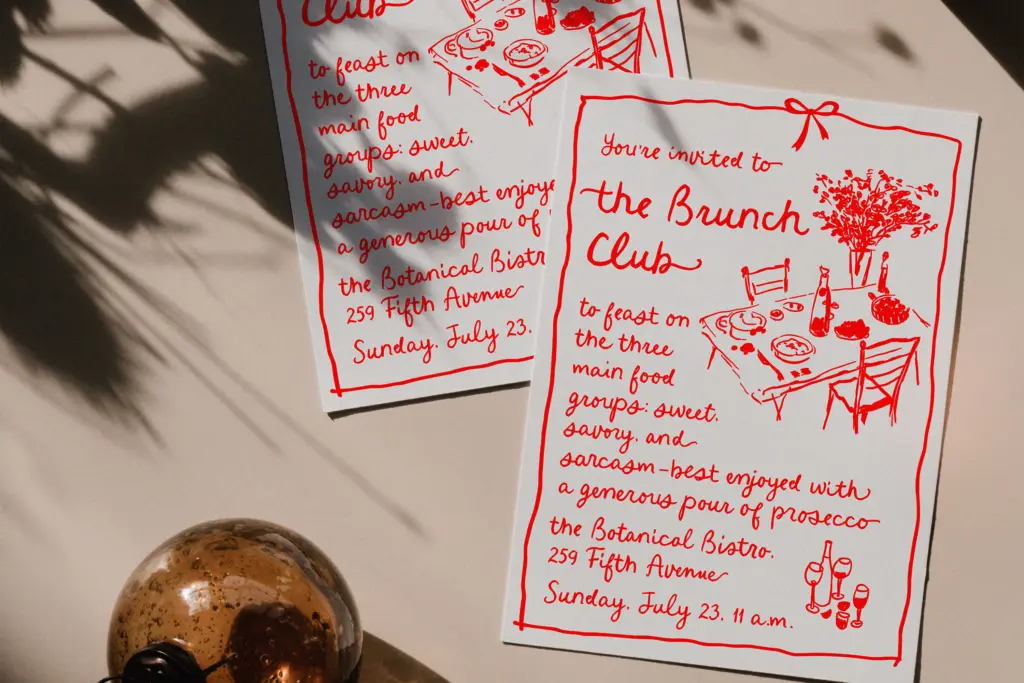 Club
to feast on
the three
main food
groups: sweet.
savory. and
sarcasm-best enjoye
a generous pour of
the Botanical Bistr
259 Fifth Avenue
Sunday. July 23.
You're invited to
the Brunch
Club
to feast on
the three
main food
groups: sweet.
savory. and
sarcasm-best enjoyed with
a generous pour of prosecco
the Botanical Bistro.
259 Fifth Avenue
Sunday. July 23. 11 a.m.